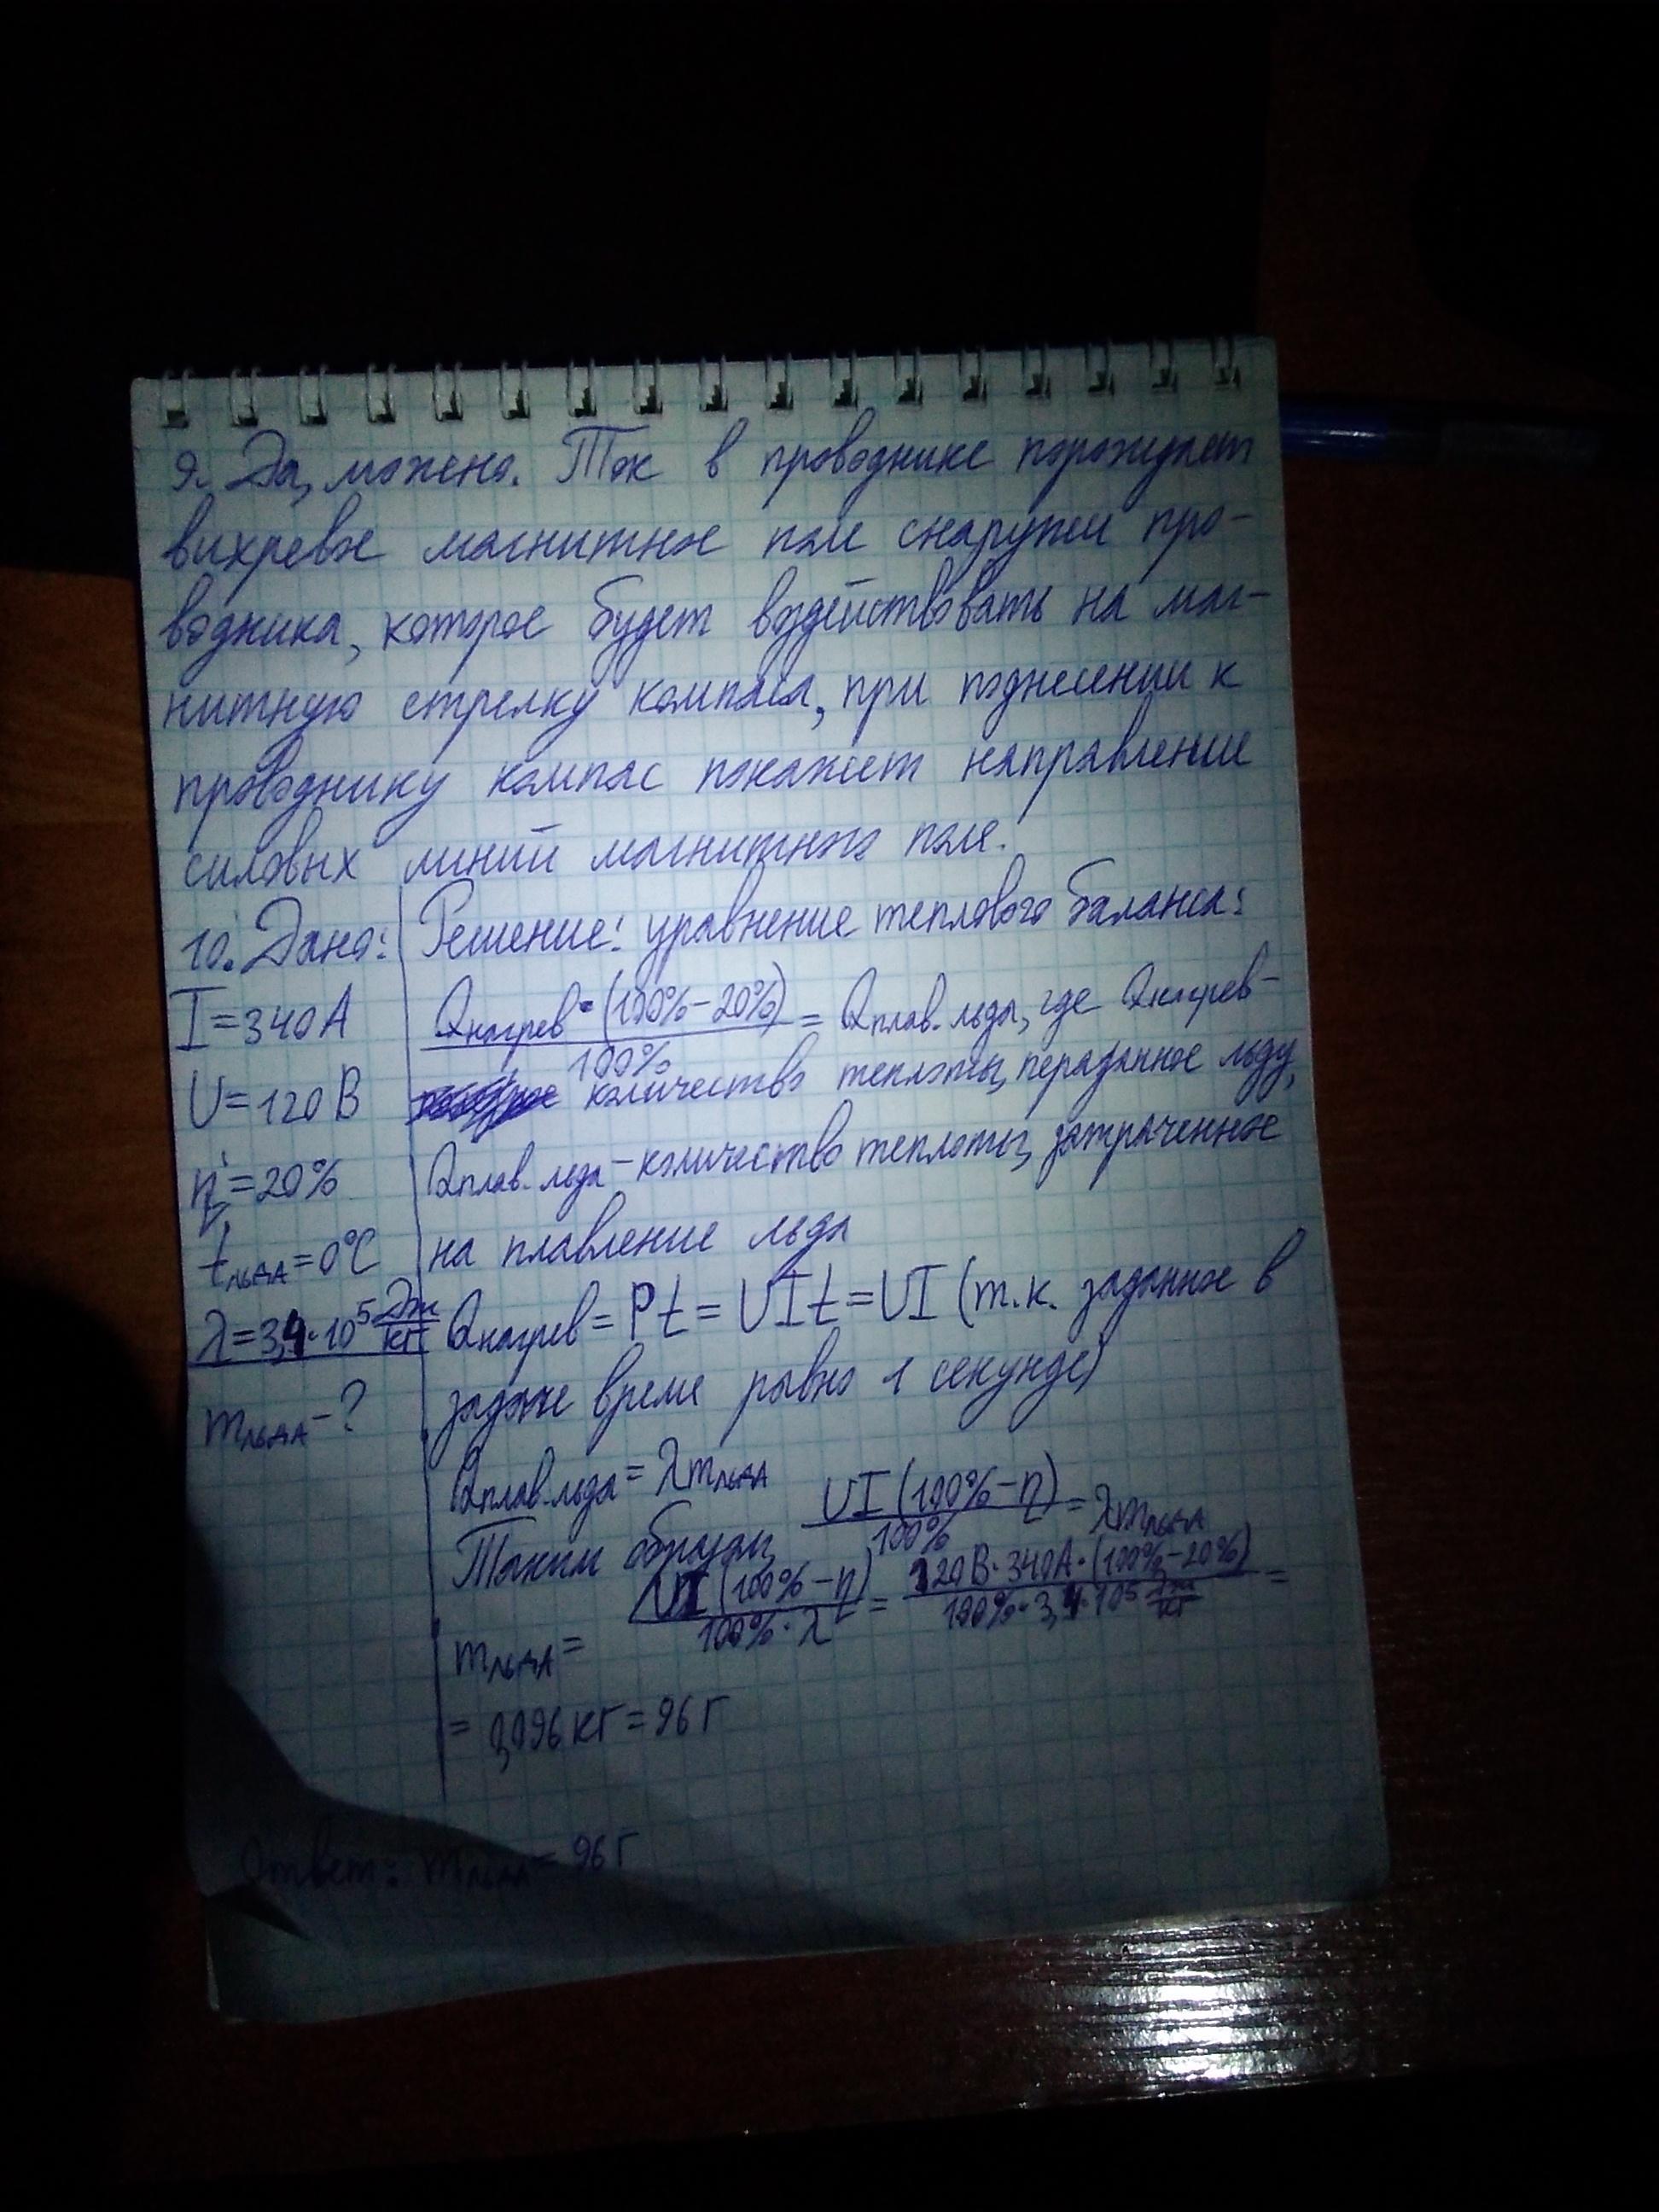 9. Да, можно. Ток в проводнике порождает
вихревое магнитное поле снаружи про-
водника, которое будет воздействовать на маг-
нитную стрелку компаса, при поднесении к
проводнику компас покажет направление
силовых линий магнитного поля.
10. Дано:
I=340А
U=120В
η=20%
tльда=0°C
λ=3,4·10⁵ Дж/кг
mльда-?
Решение: уравнение теплового баланса:
Qнагрев·(100%-20%)/100% = Qплав.льда, где Qнагрев-
количество теплоты, переданное льду,
Qплав.льда-количество теплоты, затраченное
на плавление льда
Qнагрев=Pt=UIt=UI (т.к. заданное в
задаче время равно 1 секунде)
Qплав.льда=λmльда
Таким образом, UI(100%-η)/100%=λmльда
mльда= UI(100%-η)/100%·λ = 120В·340А·(100%-20%)/100%·3,4·10⁵ Дж/кг =
= 0,096кг=96г
Ответ: mльда=96г